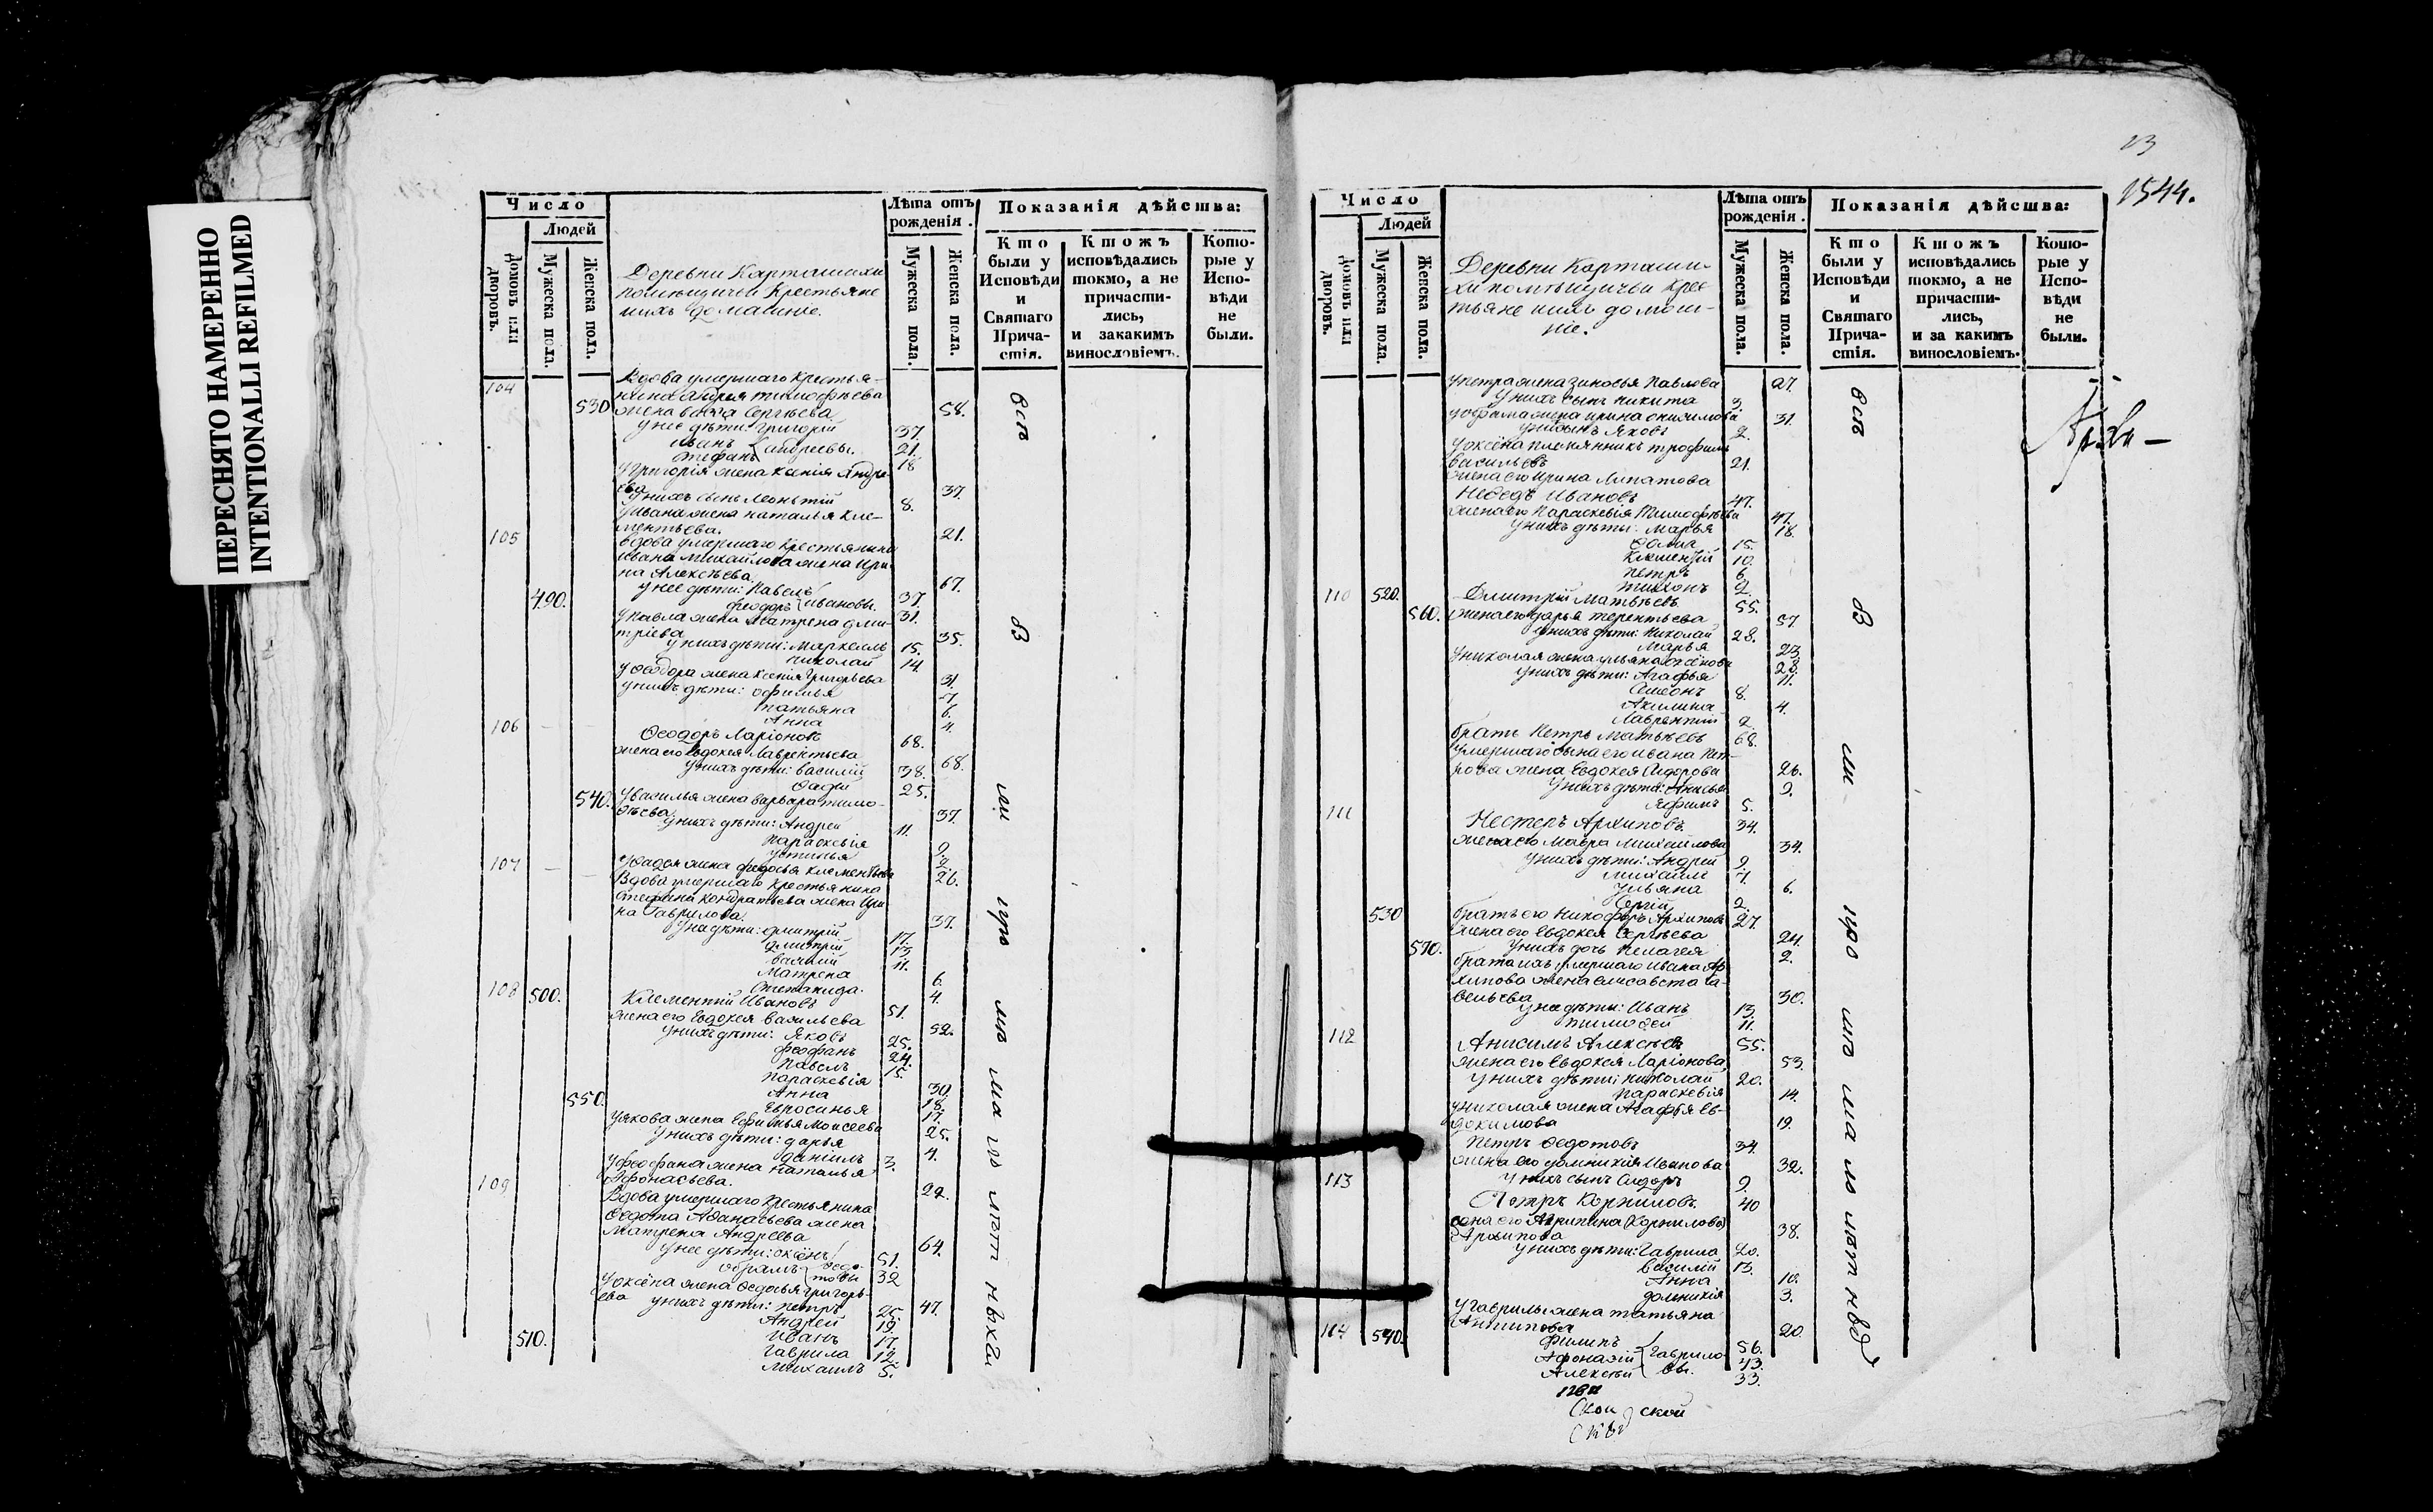 ПЕРЕСНЯТО НАМЕРЕННО
INTENTIONALLI REFILMED
Число
Людей
Домовъ или дворовъ.
Мужеска пола.
Женска пола.
Деревни Карташихи
помѣщичьи Крестьяне
ихъ домашніе.
Лѣта отъ рожденія.
Мужеска пола.
Женска пола.
Показанія дѣйства:
Кто были у Исповѣди и Святаго Причастія.
Ктожъ исповѣдались токмо, а не причастились, и закакимъ винословіемъ.
Которые у Исповѣди не были.
104 Вдова умершаго Крестья-
нина Андрея Тимофѣева
530 жена Сергѣева 58.
у нее дѣти: Григорій 37.
Иванъ 21.
Стефанъ Андреевы. 18
У Григорія жена Ксенія Андре-
ева 37.
у нихъ сынъ Леонтій 8.
У Ивана жена Наталья Кле-
ментьева. 21.
105 Вдова умершаго крестьянина
Ивана Михайлова жена Ири-
на Алексѣева. 67.
у нее дѣти: Павелъ 37.
490. Феодоръ Ивановы. 31.
У Павла жена Матрена Дми-
тріева 35.
у нихъ дѣти: Маркеллъ 15.
Николай 14.
У Ѳеодора жена Ксенія Григорьева 31
у нихъ дѣти: Офимья 7
Татьяна 6.
Анна 4.
106 Ѳеодоръ Ларіоновъ 68.
жена его Евдокея Лаврентьева 68.
у нихъ дѣти: Василій 38.
Фадѣй 25.
540. У Василья жена Варвара Тимо-
ѳѣева. 37.
у нихъ дѣти: Андрей 11.
Параскевія 9.
Устинья 2.
У Фадея жена Федосья Клементьева 26.
107 Вдова умершаго Крестьянина
Стефана Кондратьева жена Ири-
на Гаврилова. 37.
У ней дѣти: Дмитрій 17.
Дмитрій 13
Василій 11.
Матрена 6.
Степанида. 4.
108 500. Клементій Ивановъ 51.
жена его Евдокея Васильева 52.
у нихъ дѣти: Яковъ 25.
Феофанъ 24.
Павелъ 15.
Параскевія 30.
Анна 18.
550. Евросинья 17.
У Якова жена Ефимья Моисеева 25.
У нихъ дѣти: Дарья 4.
Даніилъ 3.
У Феофана жена Наталья
Афонасьева. 22.
109 Вдова умершаго Крестьянина
Ѳедота Аѳанасьева жена
Матрена Андреева 64.
у нее дѣти: Оксёнъ 51.
Обрамъ Ѳедотовы 32
У Оксёна жена Ѳедосья Григорь-
ева 47.
у нихъ дѣти: Петръ 25.
Андрей 19.
Иванъ 17.
510. Гаврила 12.
Михаилъ 5.
13
1544.
Число
Людей
Домовъ или дворовъ.
Мужеска пола.
Женска пола.
Деревни Карташи-
хи помѣщичьи Крес-
тьяне ихъ домаш-
ніе.
Лѣта отъ рожденія.
Мужеска пола.
Женска пола.
Показанія дѣйства:
Кто были у Исповѣди и Святаго Причастія.
Ктожъ исповѣдались токмо, а не причастились, и за какимъ винословіемъ.
Которые у Исповѣди не были.
У Петра жена Зиновья Павлова 27.
У нихъ сынъ Никита 3.
У Обрама жена Ирина Онисимова 31.
у нихъ сынъ Яковъ 2.
У Оксёна племянникъ Трофимъ
Васильевъ 21.
жена его Ирина Липатова
Нефедъ Ивановъ 47.
жена его Параскевія Тимофѣева 47.
У нихъ дѣти: Марья 18.
Фома 15.
Клементій 10.
Петръ 6.
Тихонъ 2.
110 520. Дмитрій Матвѣевъ. 55.
560. жена его Дарья Терентьева 57.
у нихъ дѣти: Николай 28.
Марья 23.
У Николая жена Ульяна Оксёнова 28.
у нихъ дѣти: Агафья 11.
Симеонъ 8.
Акилина 4.
Лаврентій 2.
братъ Петръ Матвѣевъ 68.
Умершаго сына его Ивана Пет-
рова жена Евдокея Сидорова 26.
У нихъ дѣти: Анисья 9.
Яфимъ 5.
111 Нестеръ Архиповъ. 34.
жена его Мавра Михайлова 34.
У нихъ дѣти: Андрей 9.
Михаилъ 7.
Ульяна 6.
Сергій 2.
530 братъ его Никифоръ Архиповъ 27.
жена его Евдокея Сергѣева 24.
570. У нихъ дочь Пелагея 2.
брата ихъ умершаго Ивана Ар-
хипова жена Елисавета Са-
вельева 30.
у ней дѣти: Иванъ 13.
Тимофей 11.
112 Анисимъ Алексѣевъ 55.
жена его Евдокея Ларіонова 53.
У нихъ дѣти: Николай 20.
Параскевія 14.
У Николая жена Агафья Ев-
докимова 19.
Петръ Ѳедотовъ 34.
жена его Домникія Иванова 32.
У нихъ сынъ Сидоръ 9.
113 Петръ Корниловъ. 40
жена его Агрипина (Корнилова)
Архипова 38.
у нихъ дѣти: Гаврила 20.
Василій 13.
Анна 10.
Домникія 3.
У Гаврилы жена Татьяна
Антипова 20.
114 540. Филипъ 56.
Афонасій Гаврило- 43.
Алексѣй вы. 33.